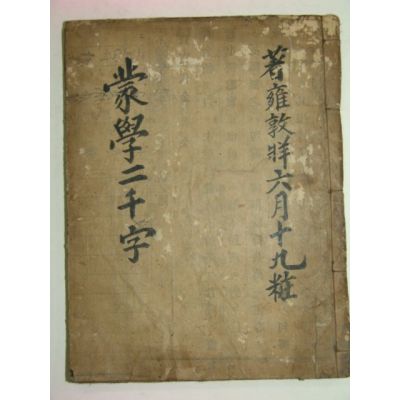 著雍敦牂六月十九粧
蒙學二千字